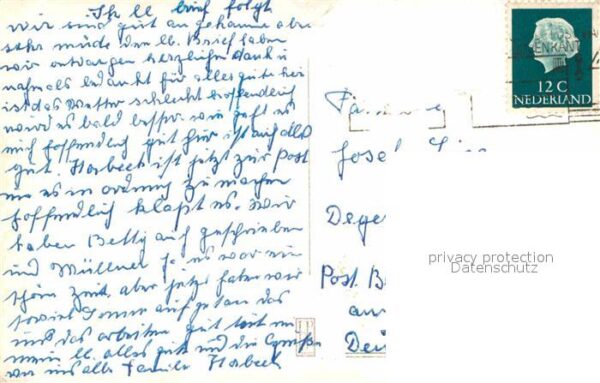 Ihr ll brief folgt
wir sind gut an gekamme aber
sehr müde den lb. Brief haben
wir entvangen herzlichen dank u
nahmals bedankt für alles gute hier
ist das Wetter schlecht hoffendlich
wird es bald besser wie geht es
mich hoffendlich gut hier ist auch alles
gut. Horbeck ist jetzt zur Post
um es in ordnung zu machen
hoffendlich klapt es. wir
haben Betty auch geschrieben
und Müllner ja es war ein
schöne Zeit, aber jetzt haben wir
soviel auf getan das
uns das arbeiten gut tut
mein ll. alles gute und die Grüße
von uns alle Familie Horbeck
12 C
NEDERLAND
Josef
Dege
Post. B
an
privacy protection
Datenschutz